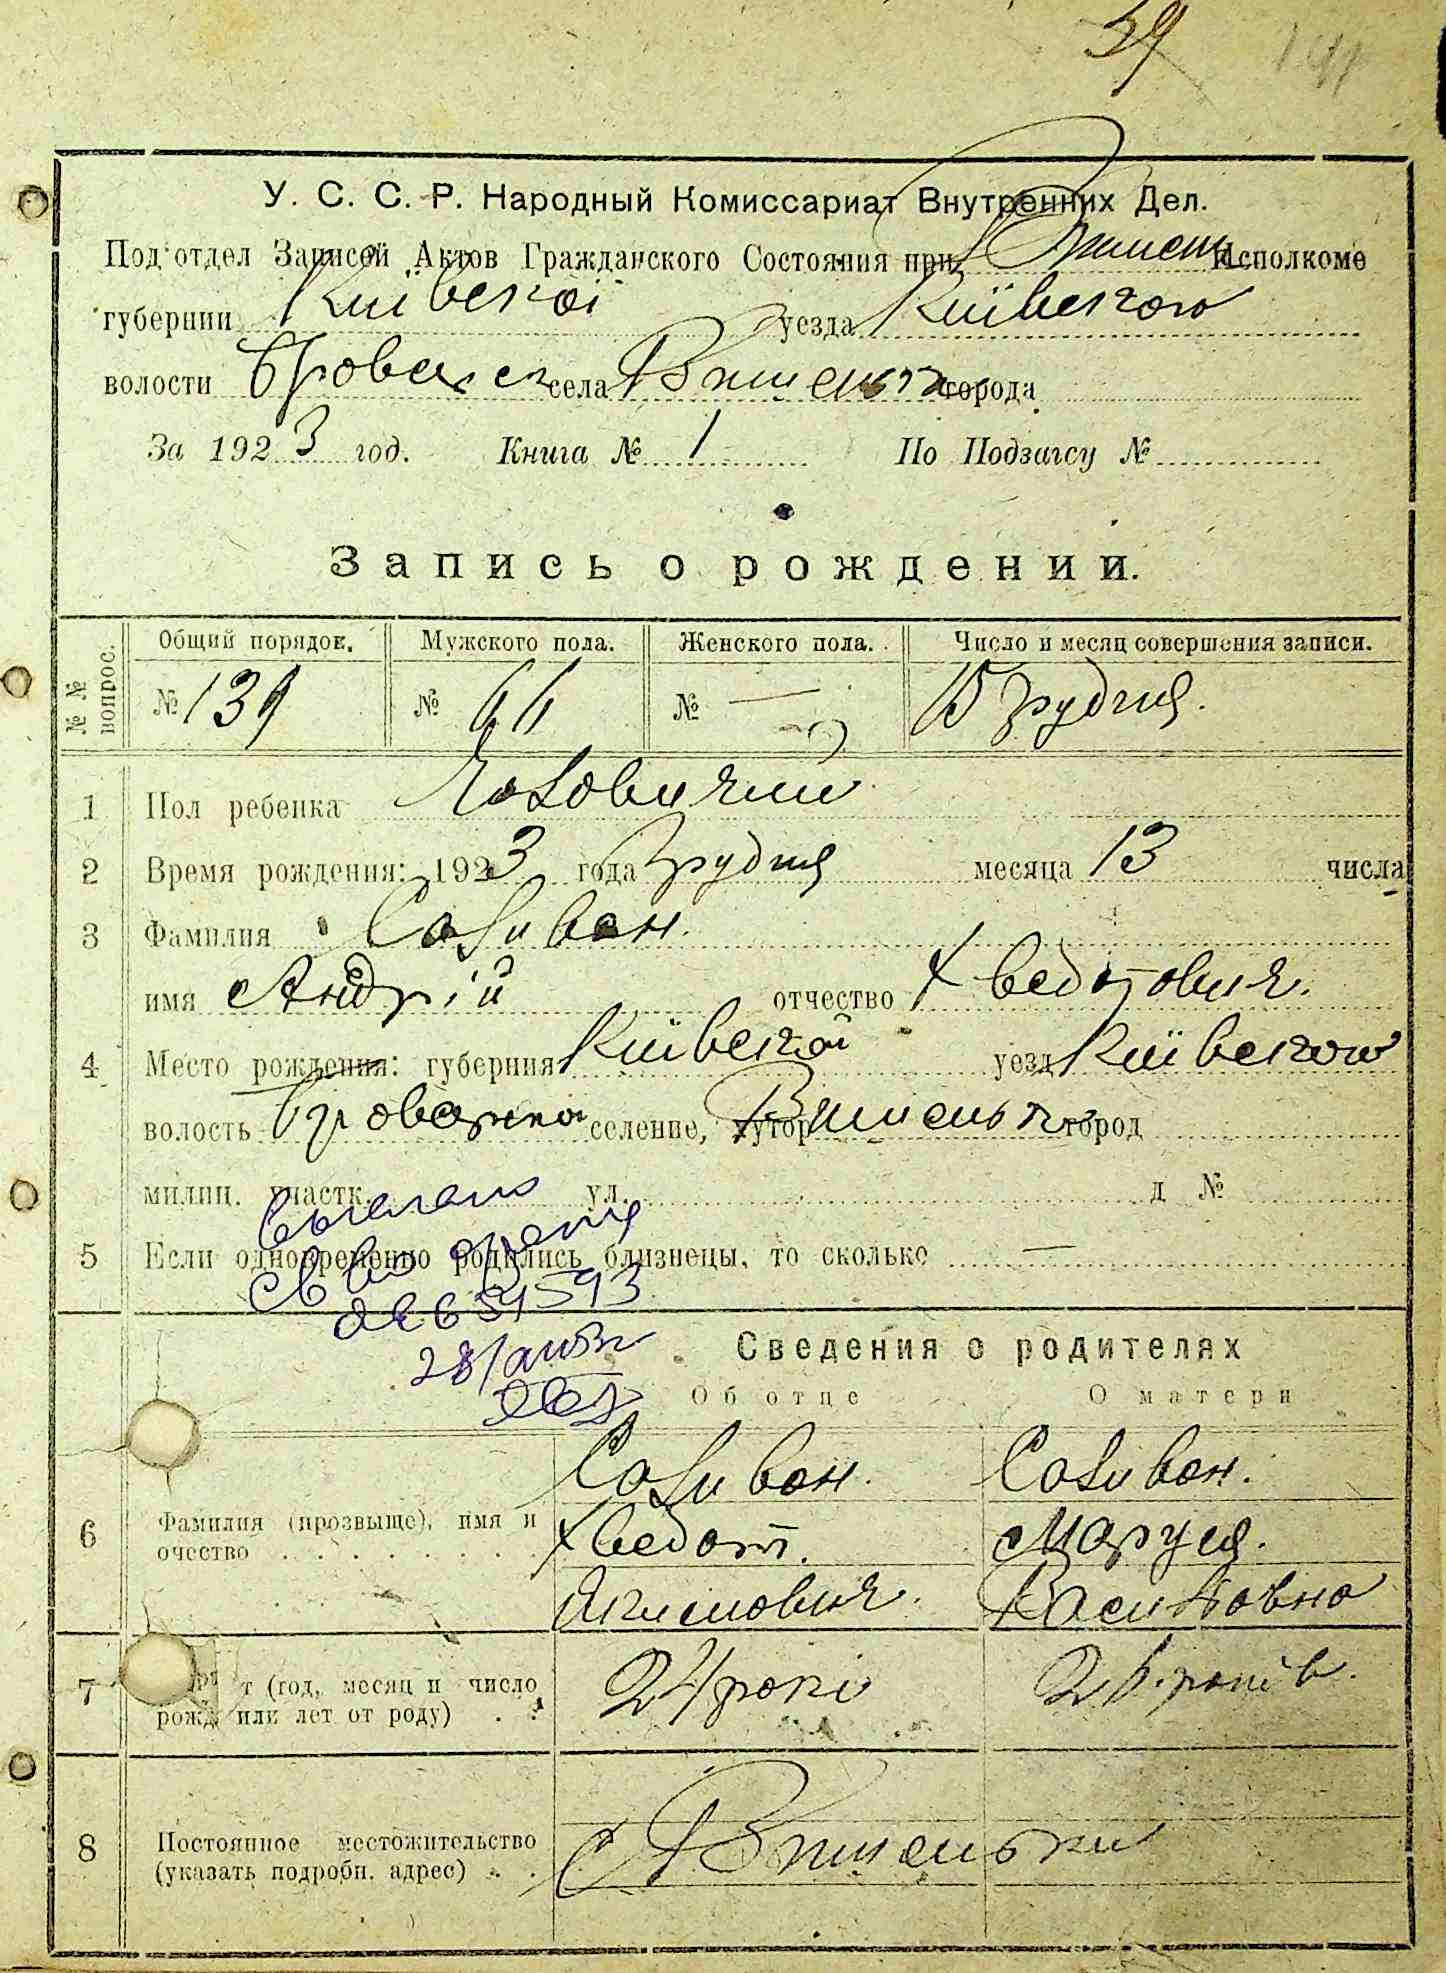 39
У. С. С. Р. Народный Комиссариат Внутренних Дел.
Под'отдел Записей Актов Гражданского Состояния при Исполкоме
губернии Київскої уезда Київского
волости Броварск села Вишеньки города
За 1923 год. Книга № 1 По Подзагсу №
Запись о рождении.
№ № вопрос. Общий порядок. Мужского пола. Женского пола. Число и месяц совершения записи.
№ 139 № 66 № — 15 грудня.
1 Пол ребенка Чоловичий
2 Время рождения: 1923 года грудня месяца 13 числа
3 Фамилия Саливон.
имя Андрій отчество Хведотович.
4 Место рождения: губерния Київской уезд Київского
волость Броварска селение, хутор Вишеньки город
милиц. участк. ул. д №
5 Если одновременно родились близнецы, то сколько —
Сведения о родителях
Об отце О матери
6 Фамилия (прозвыще), имя и очество
Саливон. Саливон.
Хведот. Маруся.
Якимович. Василовна
7 т (год, месяц и число рожд или лет от роду) 24 роки 26 років.
8 Постоянное местожительство (указать подробн. адрес) с Вишеньки